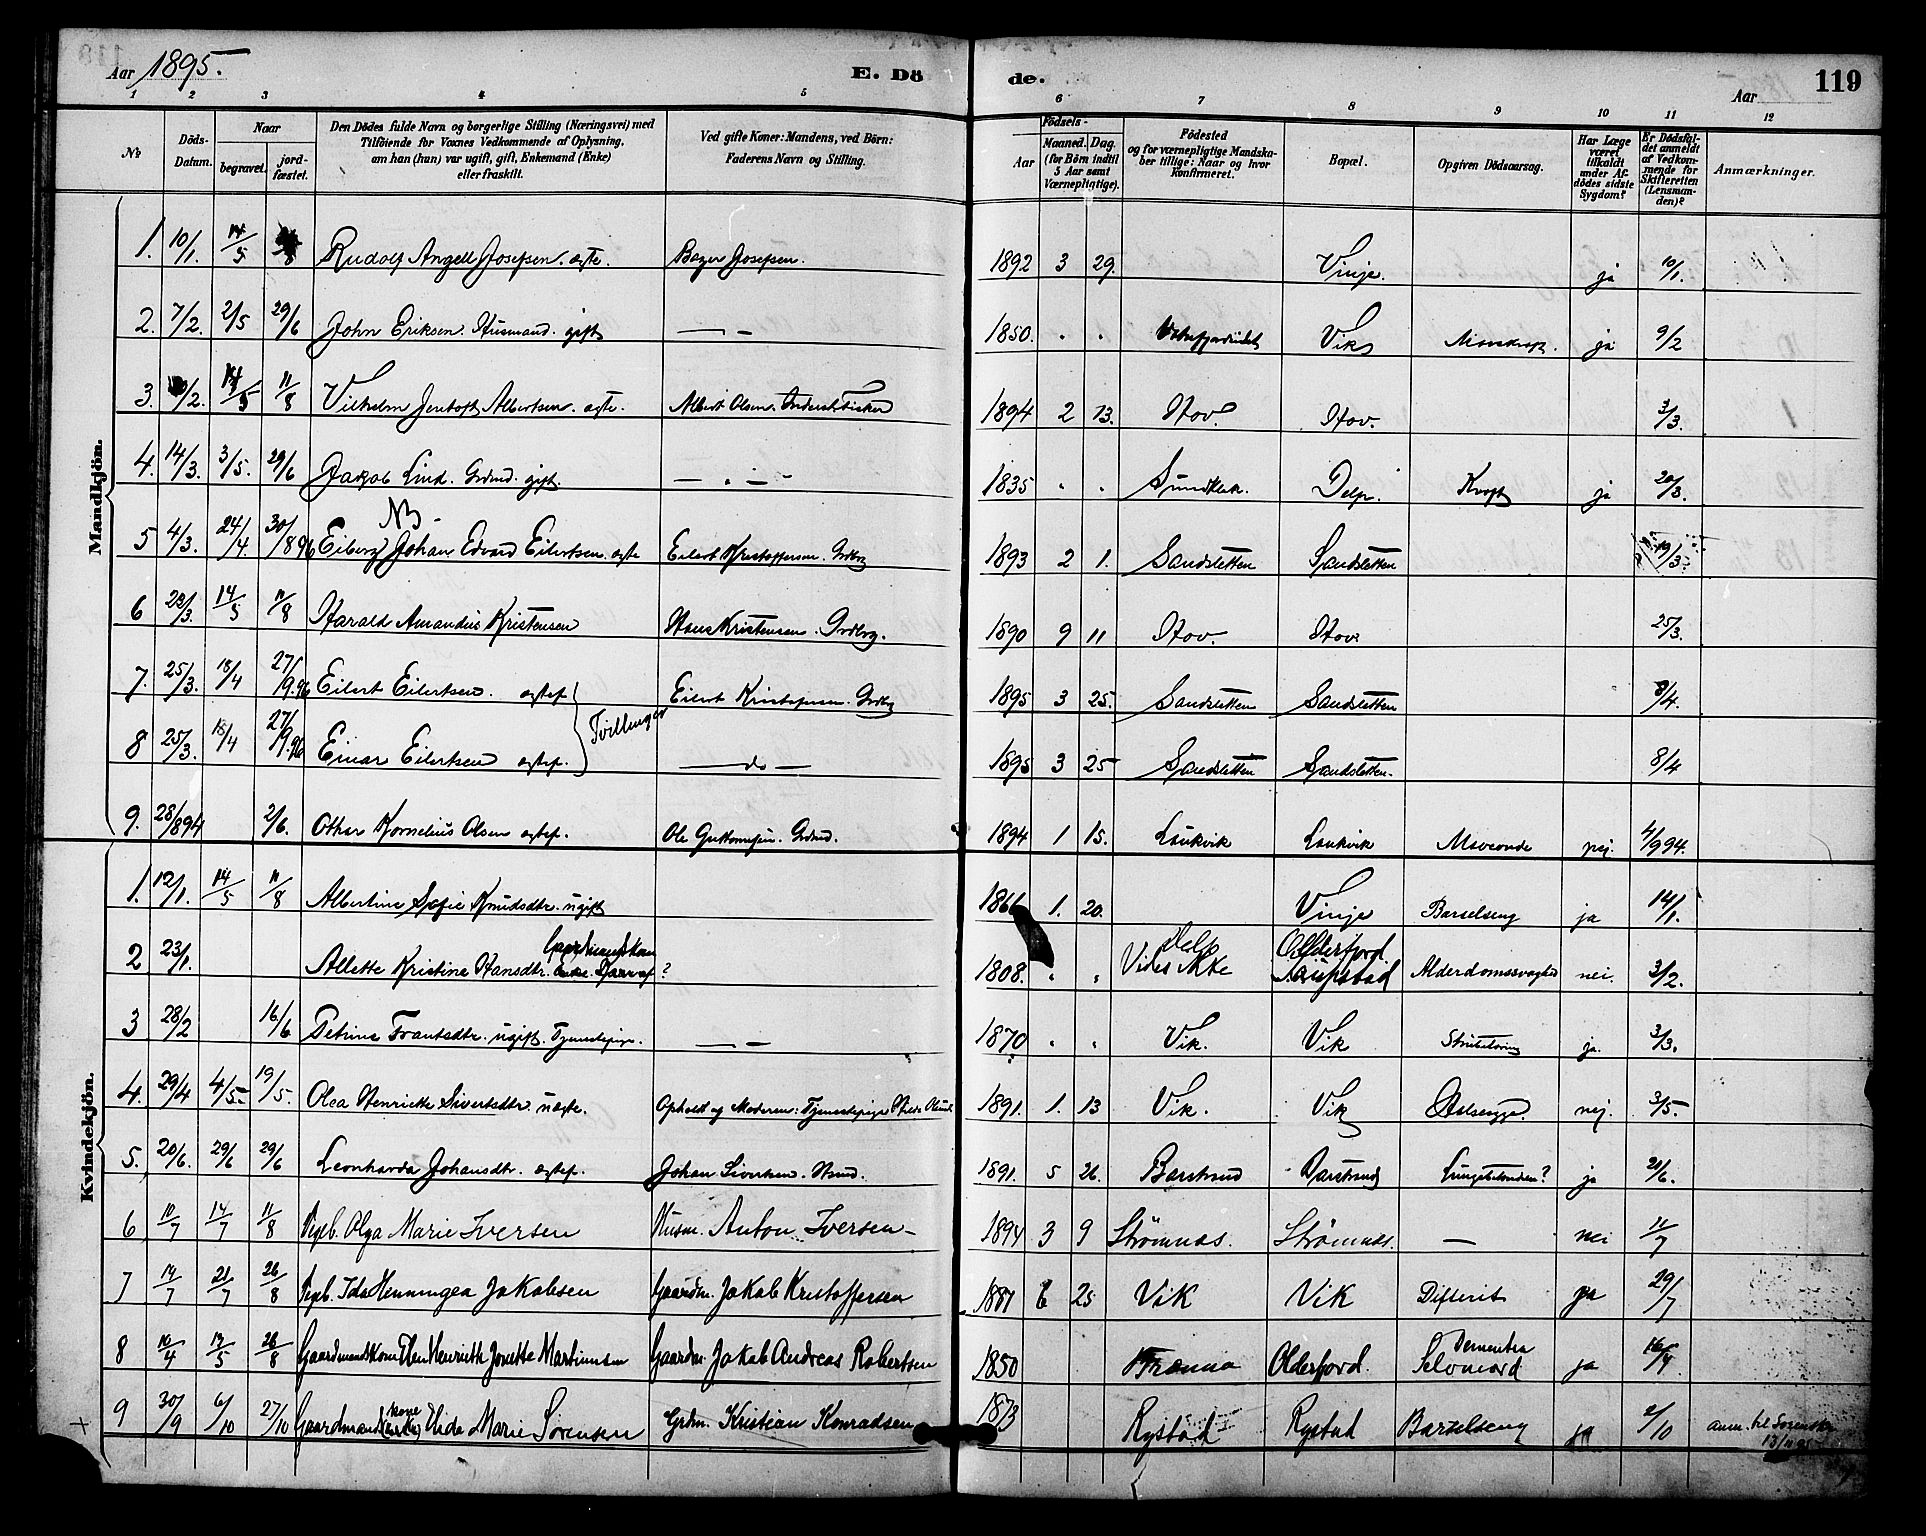 Aar 1895.
E. Dö
de.
Aar
119
1 2 3 4 5 6 7 8 9 10 11 12
No
Döds-Datum.
Naar
begravet.
jord-fæstet.
Den Dödes fulde Navn og borgerlige Stilling (Næringsvei) med
Tilföiende for Voxnes Vedkommende af Oplysning,
om han (hun) var ugift, gift, Enkemand (Enke)
eller fraskilt.
Ved gifte Koner: Mandens, ved Börn:
Faderens Navn og Stilling.
Födsels-
Aar
Maaned. Dag.
(for Börn indtil
5 Aar samt
Værnepligtige).
Födested
og for værnepligtige Mandska-
ber tillige: Naar og hvor
Konfirmeret.
Bopæl.
Opgiven Dödsaarsag.
Har Læge
været
tilkaldt
under Af-
dödes sidste
Sygdom?
Er Dödsfal-
det anmeldt
af Vedkom-
mende for
Skifteretten
(Lensman-
den)?
Anmærkninger.
Mandkjön.
1. 10/1. 14/5 Rudolf Angell Josefsen. ægte. Josefsen. 1892 3 29. Vinje. ja 10/1.
2. 7/2. 2/5 29/6 John Eriksen. Husmand. gift — 1850. " " Vik 9/2 ja
3. /2. 14/5 11/8 Vilhelm Jentoft Albertsen. ægte. Albert Olsen. Fisker 1894 2 13. Hov. Hov. 3/3.
4. 14/3. 3/5. 29/6 Jakob Lind. Grdmd. gift. — " — 1835 " " Delp. Kræft ja 20/3.
NB
5 4/3. 24/4. 30/896 Eiberg Johan Edvard Eilertsen. ægte Eilert Kristoffersen. Grdbrg 1893 2 1. Sandsletten Sandsletten 19/3
6 23/3. 14/5 11/8 Harald Amandus Kristensen Hans Kristensen. Grdbrg. 1890 9 11 Hov. Hov. 25/3.
7. 25/3. 18/4 27/9.96 Eilert Eilertsen. ægtef. Tvillinger Eilert Kristofersen. Grdbrg 1895 3 25. Sandsletten Sandsletten 8/4.
8 25/3. 18/4 27/9.96 Einar Eilertsen ægtef. — do — 1895 3 25 Sandsletten Sandsletten. 8/4
9. 28/894 2/6. Othar Kornelius Olsen ægtef. Ole Guttormsen. Grdmd. 1894 1 15. Laukvik Laukvik Mavesonde nej. 4/994.
Kvindekjön.
1. 12/1. 14/5 11/8 Albertine Sofie Knudsdtr. ugift 1866 1. 20. Vinje Barselseng ja 14/1.
2 23/1. Allette Kristine Hansdtr. Gaardmandskone ? 1808. " " Delp Vides ikke Olderfjord Laupstad Alderdomssvaghed nei. 3/2.
3 28/2 16/6 Petrine Frantsdtr. ugift. Tjenestepige. — 1870 " " Vik. Vik Strubetæring ja. 3/3.
4. 29/4 4/5 19/5. Olea Henriette Sivertsdtr. uægte. Opholdt og Moderen: Tjenestepige 1891. 1. 13 Vik. Vik nej. 3/5.
5. 20/6. 29/6 29/6 Leonharda Johansdtr. ægtef. Johan Sivertsen. 1891. 5 26. Barstrand Barstrand Lungebetændelse? ja 21/6.
6 10/7 14/7 11/8 Pigeb. Olga Marie Iversen Husm. Anton Iversen — 1894 3 9 Strömnæs. Strömnæs. — nei 11/7
7 14/7 21/7 26/8 Pigeb. Ida Henningea Jakobsen Gaardm. Jakob Kristoffersen 1887 6 25 Vik Vik Difterit ja 29/7
8 10/4 13/5 26/8 Gaardmandskone Elen Henriette Jonette Martinusen Gaardm. Jakob Andreas Robertsen 1850 Olderfjord. Dementia Selvmord ja 16/4
9 30/9 6/10 27/10 Gaardmandskone Hilda Marie Sörensen Grdm. Kristian Konradsen 1873 Rystad Rystad Barselseng ja 2/10 anm. til Sorenskr 13/11 95